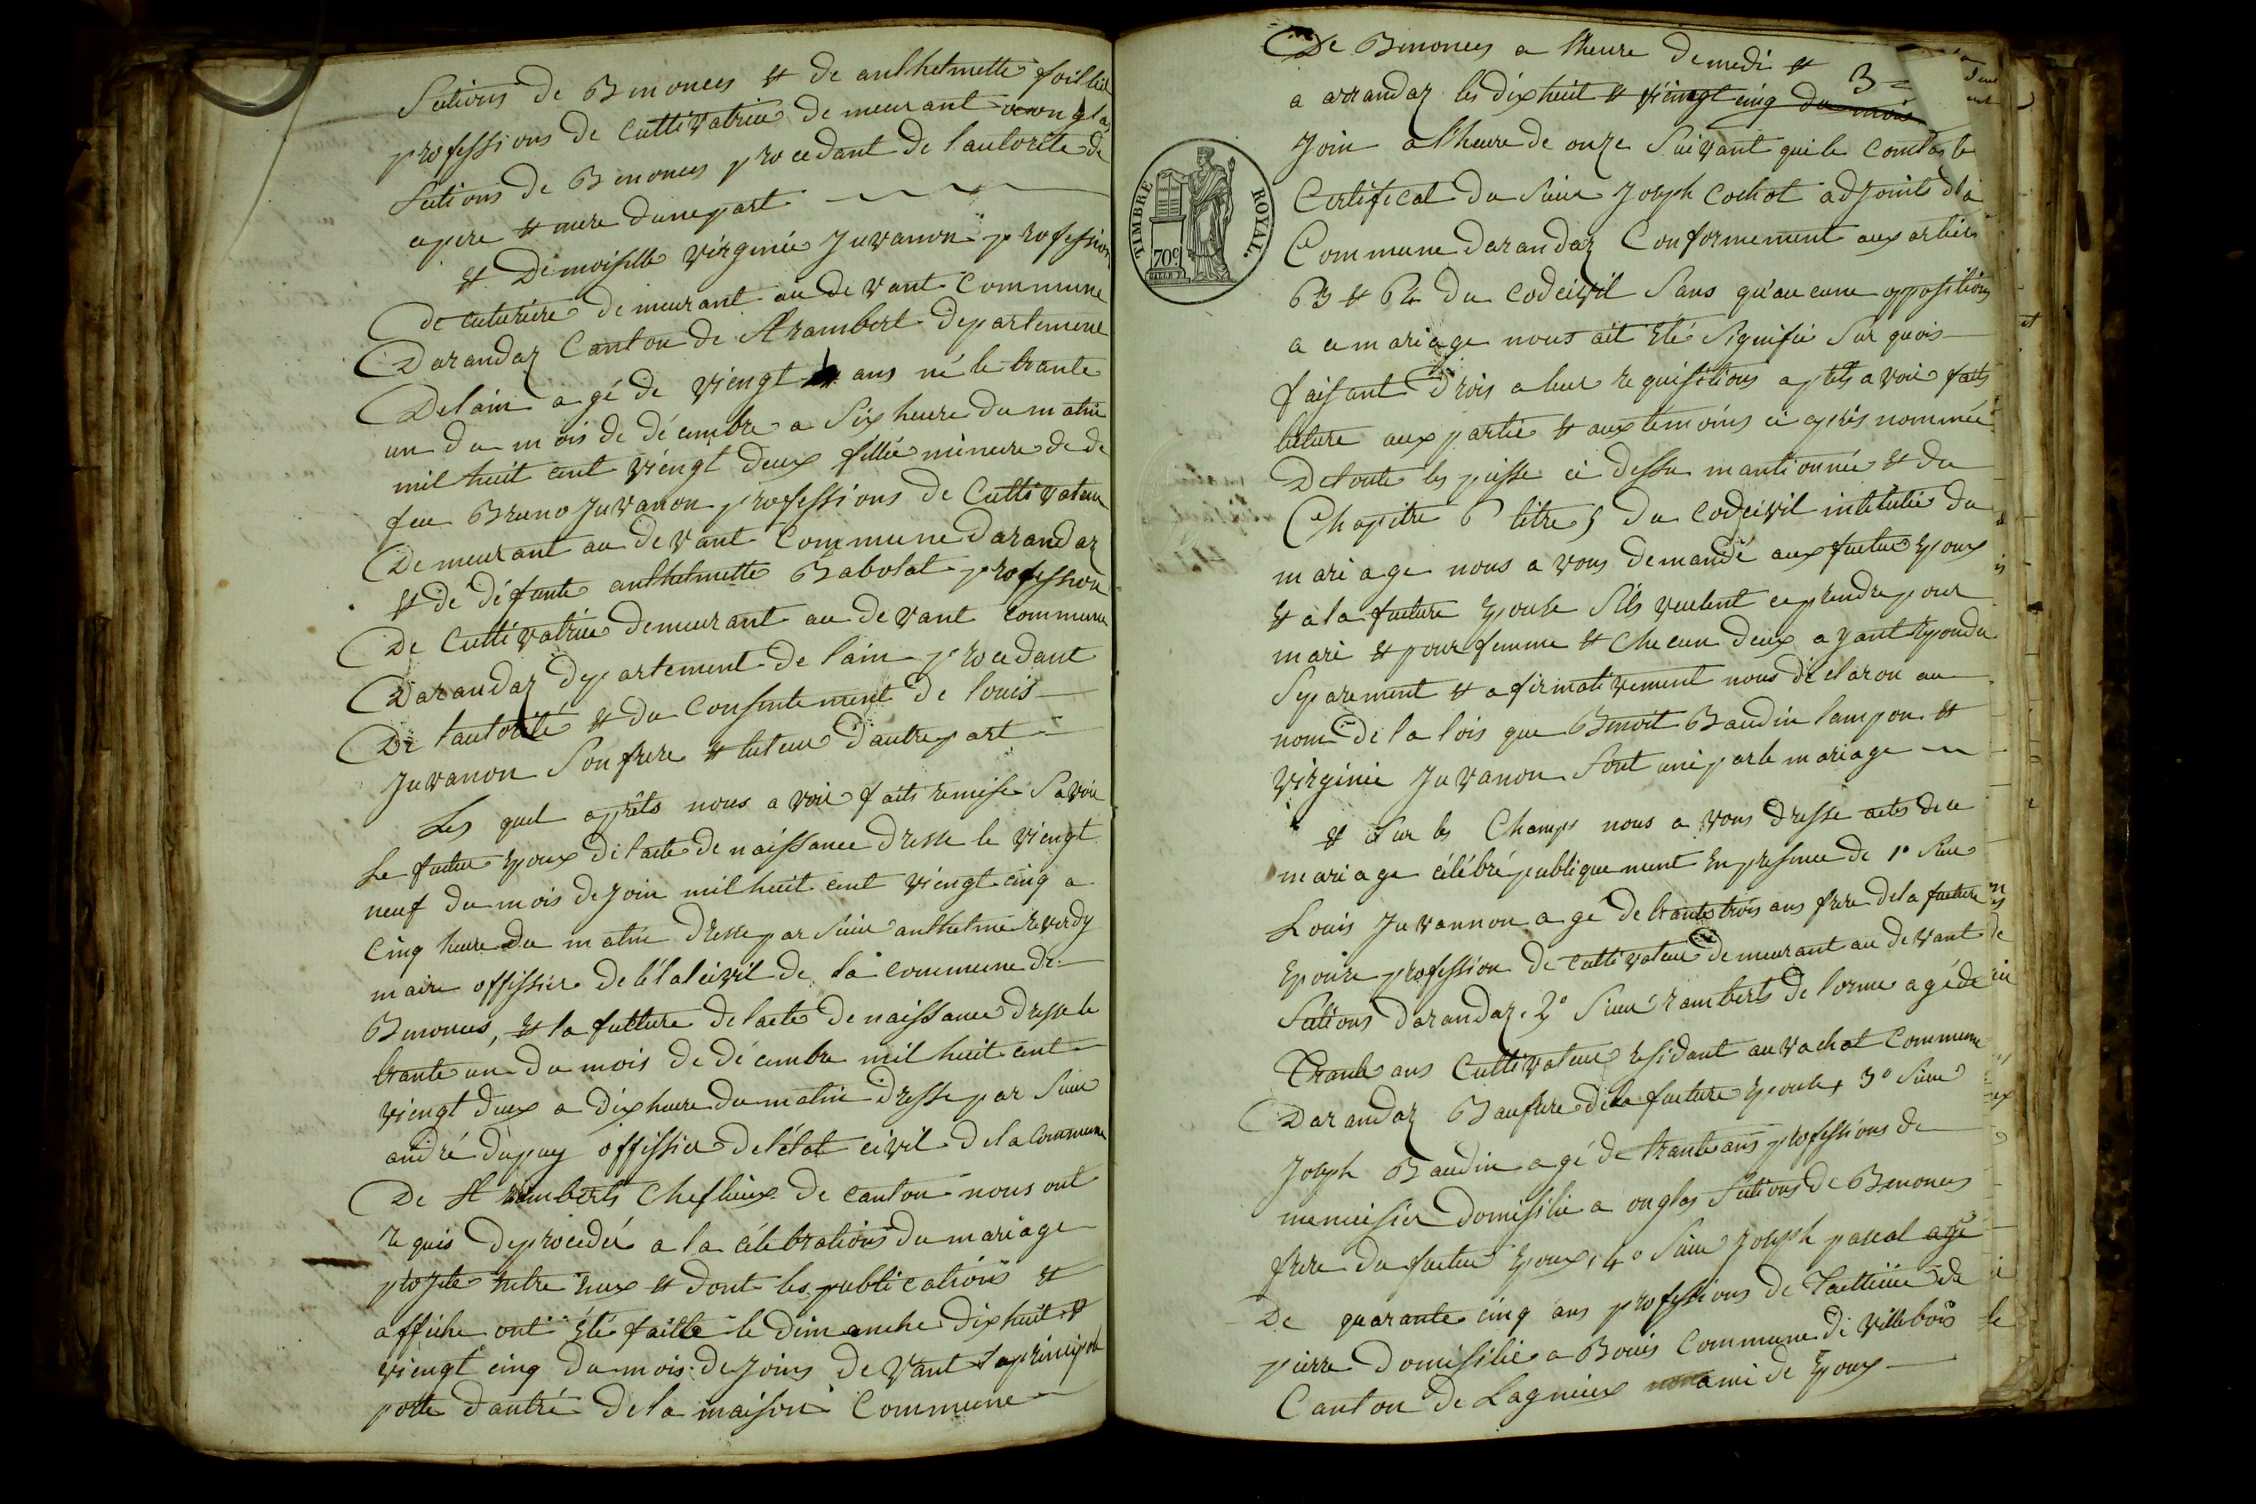 Sections de Bénonces et de anthelmette foillet
professions de cultivatrice demeurant a onglas
Sections de Benonces procedant de lautorite de
ce pere et mere dunepart
et Demoiselle virginie Juvanon profession
De cuturiere demeurant au devant Commune
Darandaz Canton de St rambert departement
Delain agé de viengt ans né le trante
un du mois de décembre a Six heure du matin
mil huit cent viengt deux fillie mineure de de
feu Bruno Juvanon professions de Cultivateur
Demeurant au devant Commune Darandaz
et de défunte anthelmette Babolat profession
De Cultivatrice demeurant au devant Commune
Darandaz departement de lain procedant
De lautorité et du Consentement de louis
Juvanon Son frere et tuteur dautrepart
Les quel aprêts nous avoir faits remise Savoir
Le futur Epoux de lacte de naissance dresse le viengt
neuf du mois de Join mil huit cent viengt cinq a
Cinq heure du matin dresse par Sieur anthelme reverdy
maire offissier de létat civil de la commune de
Benonces, et la future de lacte de naissance dresse le
trante un du mois de décembre mil huit cent
viengt deux a dix heure du matin dresse par Sieur
andré dupuy offissier de létat civil de la Commune
De St ramberts Cheflieux de canton nous ont
requis de procedér a la célébrations du mariage
projete entre eux et dont les publications et
affiche ont été faitte le dimanche dix huit et
viengt cinq du mois de Join devant la principale
potte dantré de la maison Commune
De Benonces a lheure de medi et
3
a arrandaz les dix huit et viengt cinq du mois
Join a lheure de onze Suivant quil Constaste
Certificat du Sieur Joseph Cochot adjoints de la
Commune Darandaz Conformement aux articles
63 et 64 du codecivil Sans qu'aucune oppositions
a ce mariage nous ait Eté Signifié Sur quois
faisant drois a leur requisitions aprêts avoir faits
lecture aux partie et aux temoins ci après nommée
De toute les piesse ci dessu mantionnée et du
Chapitre 6 titre 5 du codecivil intitulée du
mariage nous avons demandé aux futur Epoux
et a la future Epouse Sils veulent ce prendre pour
mari et pour femme et Chacun deux ayant Repondu
Séparement et afirmativement nous déclaron au
nom de la lois que Benoit Baudin lampon et
virginie Juvanon Sont uni par le mariage
et Sur les Champs nous avons dresse acte de ce
mariage célébré publiquement En presence de 1° Sieur
Louis Juvannon agé de trante trois ans frere de la future
Epouse profession de cultivateur demeurant au devant
Sections darandaz. 2° Sieur ramberts de lorme agé de
Trante ans Cultivateur residant au vachat Commune
Darandaz Baufrere de la future Epouse, 3° Sieur
Joseph Baudin agé de trante ans professions de
menuisier domisilié a onglas Sections de Benonces
frere du futur Epoux, 4° Sieur Joseph pascal agé
De quarante cinq ans professions de Tailleur de
pierre domisilié a Bouis Commune de villebois
Canton de Lagnieux ami de Epoux
TIMBRE ROYAL.
70c